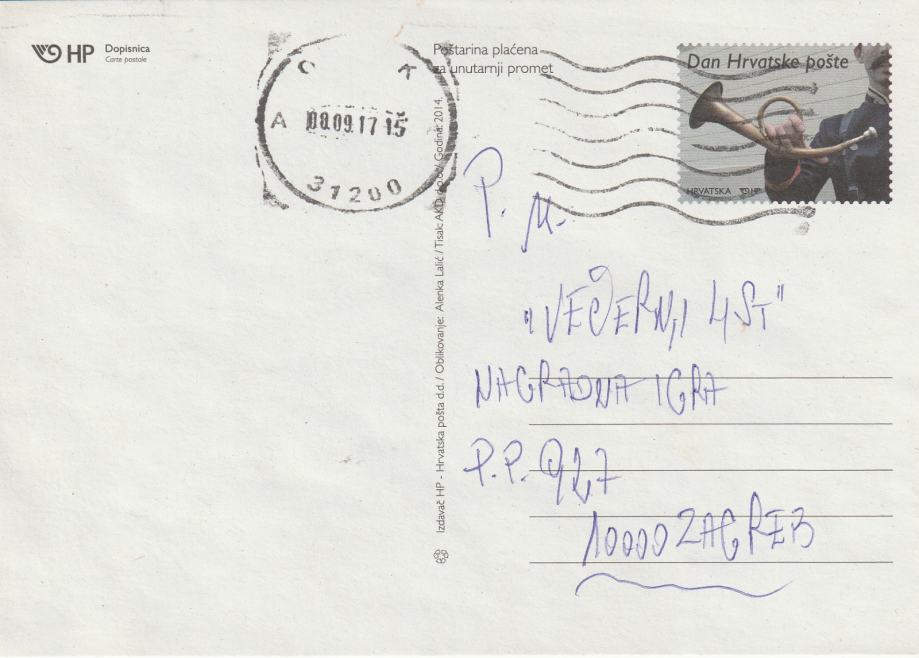 HP Dopisnica
Carte postale
Poštarina plaćena
za unutarnji promet
Dan Hrvatske pošte
HRVATSKA HP
A 08.09.17 15
31200
Izdavač HP - Hrvatska pošta d.d./ Oblikovanje: Alenka Lalić / Tisak: AKD d.o.o./ Godina: 2014.
P. M.
"VEČERNJI LIST"
NAGRADNA IGRA
P.P. 927
10000 ZAGREB